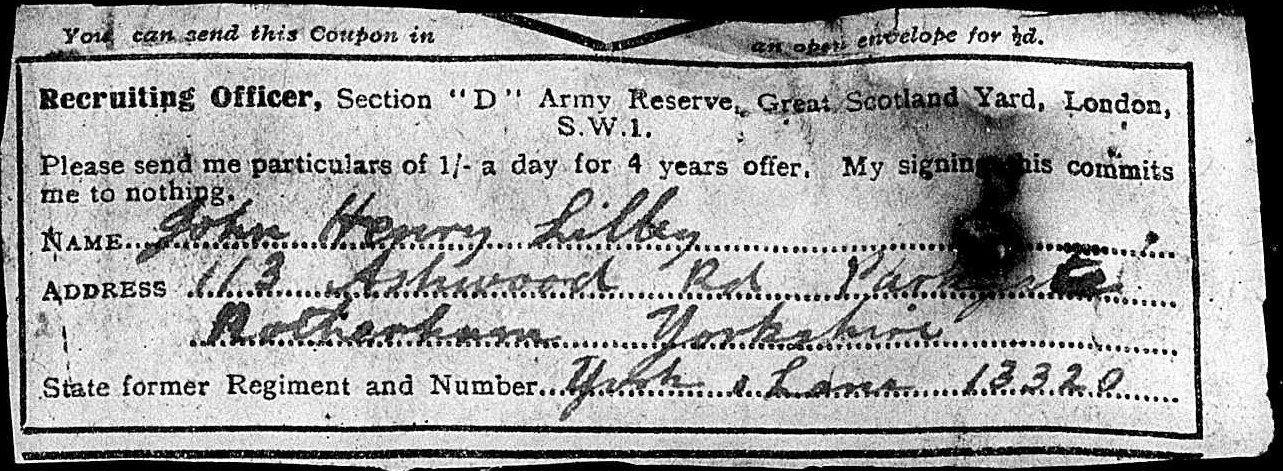 You can send this Coupon in an open envelope for ½d.
Recruiting Officer, Section "D" Army Reserve, Great Scotland Yard, London,
S.W.1.
Please send me particulars of 1/- a day for 4 years offer. My signing this commits
me to nothing.
NAME John Henry Lilley
ADDRESS 113 Ashwood Rd Parkgate
Rotherham Yorkshire
State former Regiment and Number York & Lanc 13320